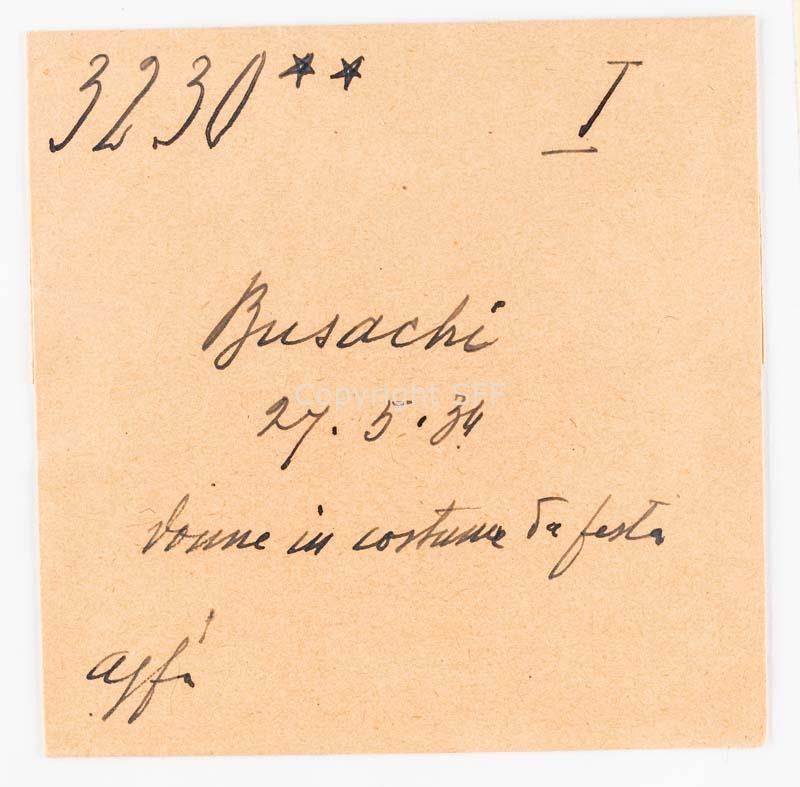 3230** I
Busachi
Copyright SFF
27.5.34
donne in costume da festa
agfa